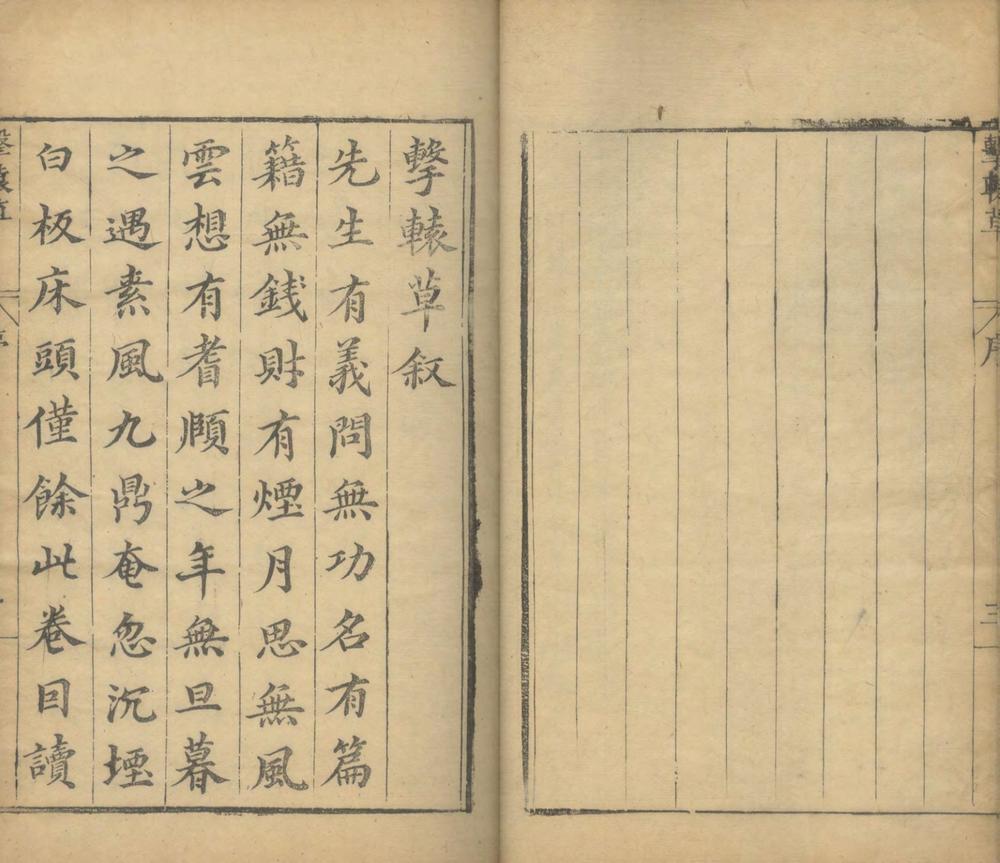 擊轅草
序
三
擊轅草叙
先生有義問無功名有篇
籍無錢財有煙月思無風
雲想有耆頋之年無旦暮
之遇素風九鼎奄忽沉堙
白板床頭僅餘此卷囙讀